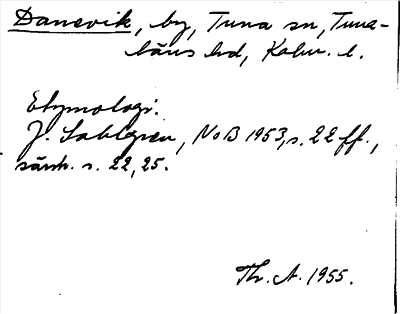 Danevik, by, Tuna sn, Tuna-
läns hd, Kalm. l.
Etymologi:
J. Sahlgren, NoB 1953, s. 22 ff.,
särsk. s. 22, 25.
Th. A. 1955.